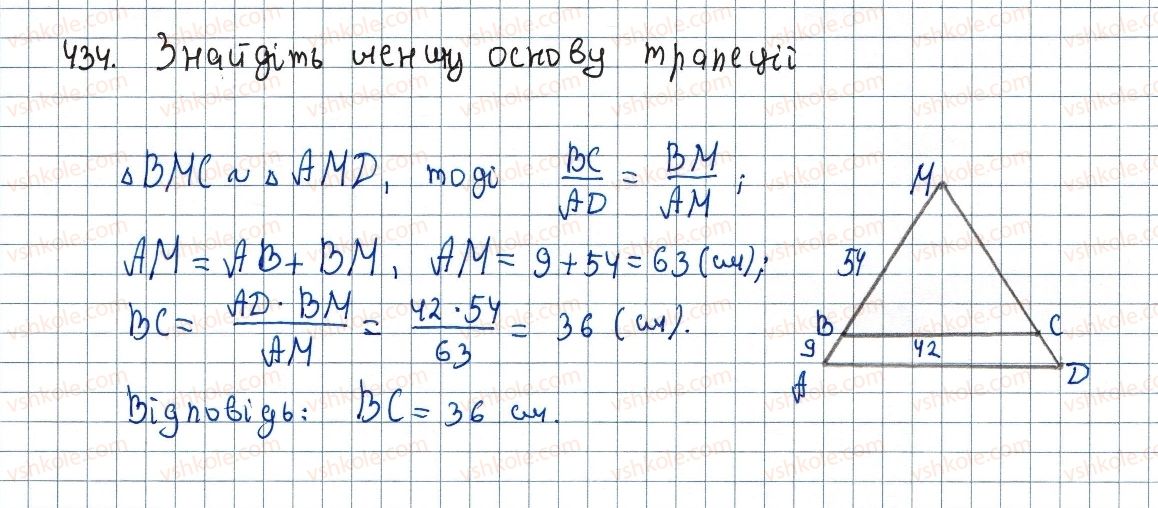 434. Знайдіть меншу основу трапеції
△ BMC ~ △ AMD, тоді BC/AD = BM/AM;
AM = AB + BM, AM = 9 + 54 = 63 (см);
BC = AD · BM/AM = 42 · 54/63 = 36 (см).
Відповідь: BC = 36 см.
M
54
B
C
9
42
A
D
vshkole.com